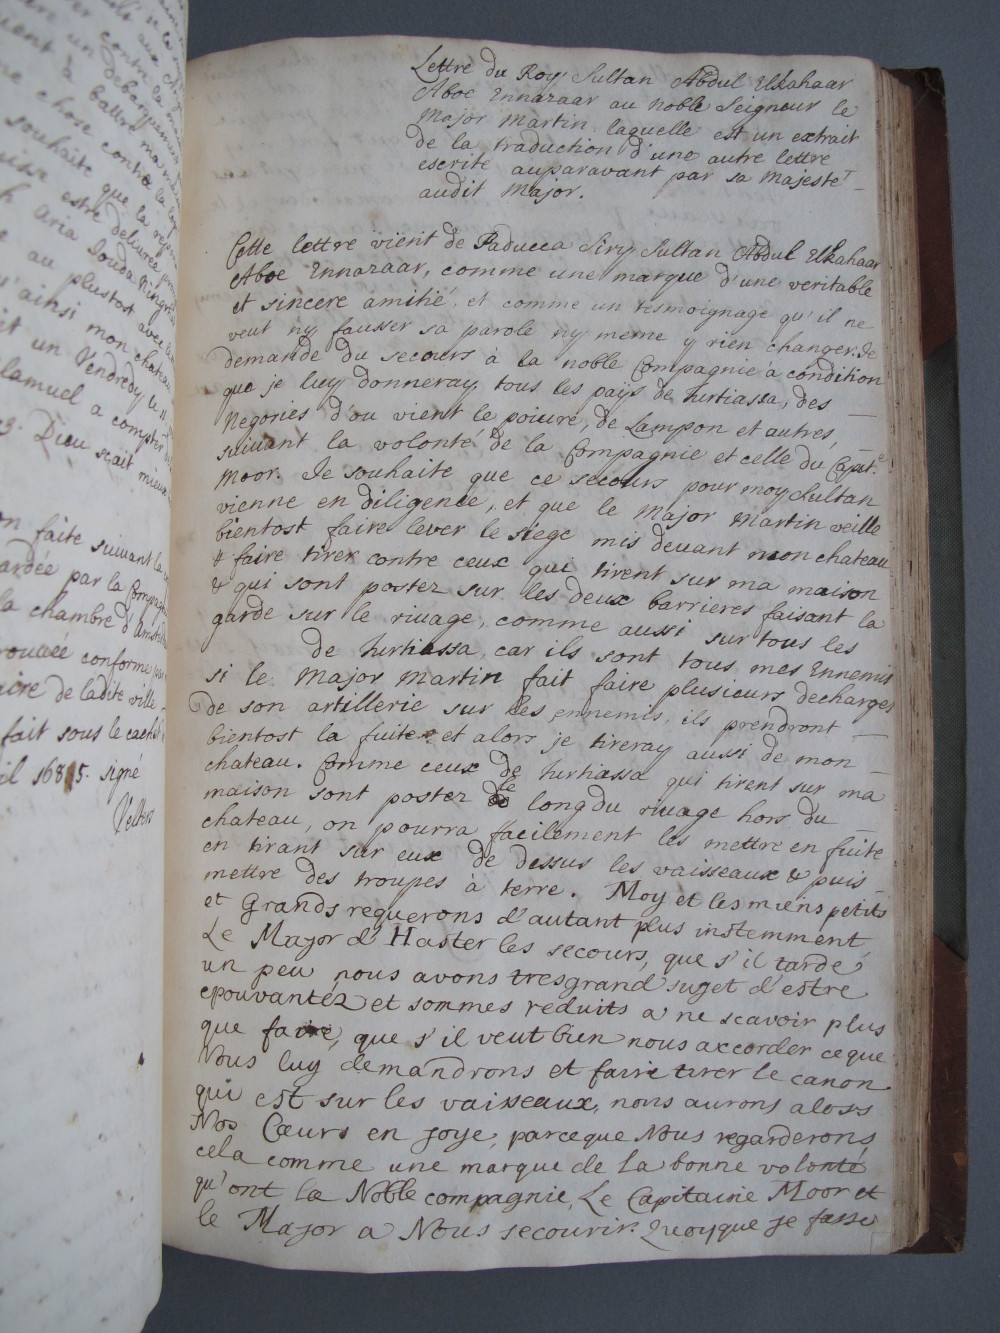 contre la
un debarquement
à battre ma
chose contre la
souhaite que la
estre delivrée
Aria Souda
au plustost avec
ainsi mon chateau
un Vendredy le 11
lamuel a compter
Dieu scait mieux
faite suivant la
ardée par la Compagnie
la chambre d'Amster
rouvée conforme
aire de ladite ville
fait sous le cachet
il 1685. signé
Lettre du Roy Sultan Abdul Elkahaar
Aboe Ennazaar au noble Seigneur le
Major Martin laquelle est un extrait
de la traduction d'une autre lettre
escrite auparavant par sa Majesté
audit Major.
Cette lettre vient de Paducca Siry Sultan Abdul Elkahaar
Aboe Ennazaar, comme une marque d'une veritable
et sincere amitié, et comme un tesmoignage qu'il ne
veut ny fausser sa parole ny meme y rien changer. Je
demande du secours à la noble Compagnie a condition
que je luy donneray tous les pays de turtiassa, des
Negories d'ou vient le poivre, de Lampon et autres,
suivant la volonté de la Compagnie et celle du Capit.e
Moor. Je souhaite que ce secours pour moy Sultan
vienne en diligence, et que le Major Martin veille
bientost faire lever le siege mis devant mon chateau
& faire tirer contre ceux qui tirent sur ma maison
& qui sont postez sur les deux barrieres faisant la
garde sur le rivage, comme aussi sur tous les
de turtiassa, car ils sont tous mes Ennemis
si le Major Martin fait faire plusieurs decharges
de son artillerie sur les ennemis, ils prendront
bientost la fuite et alors je tireray aussi de mon
chateau. Comme ceux de turtiassa qui tirent sur ma
maison sont postez le long du rivage hors du
chateau, on pourra facilement les mettre en fuite
en tirant sur eux de dessus les vaisseaux & puis
mettre des troupes à terre. Moy et les miens petits
et Grands requerons d'autant plus instemment
Le Major d'Haster les secours, que s'il tarde
un peu nous avons tres grand sujet d'estre
epouvantéz et sommes reduits a ne scavoir plus
que faire, que s'il veut bien nous accorder ce que
Nous luy demandrons et faire tirer le canon
qui est sur les vaisseaux, nous aurons alors
Nos Cœurs en joye, parceque Nous regarderons
cela comme une marque de la bonne volonté
qu'ont la Noble compagnie, Le Capitaine Moor et
le Major a Nous secourir. Quoyque je fasse